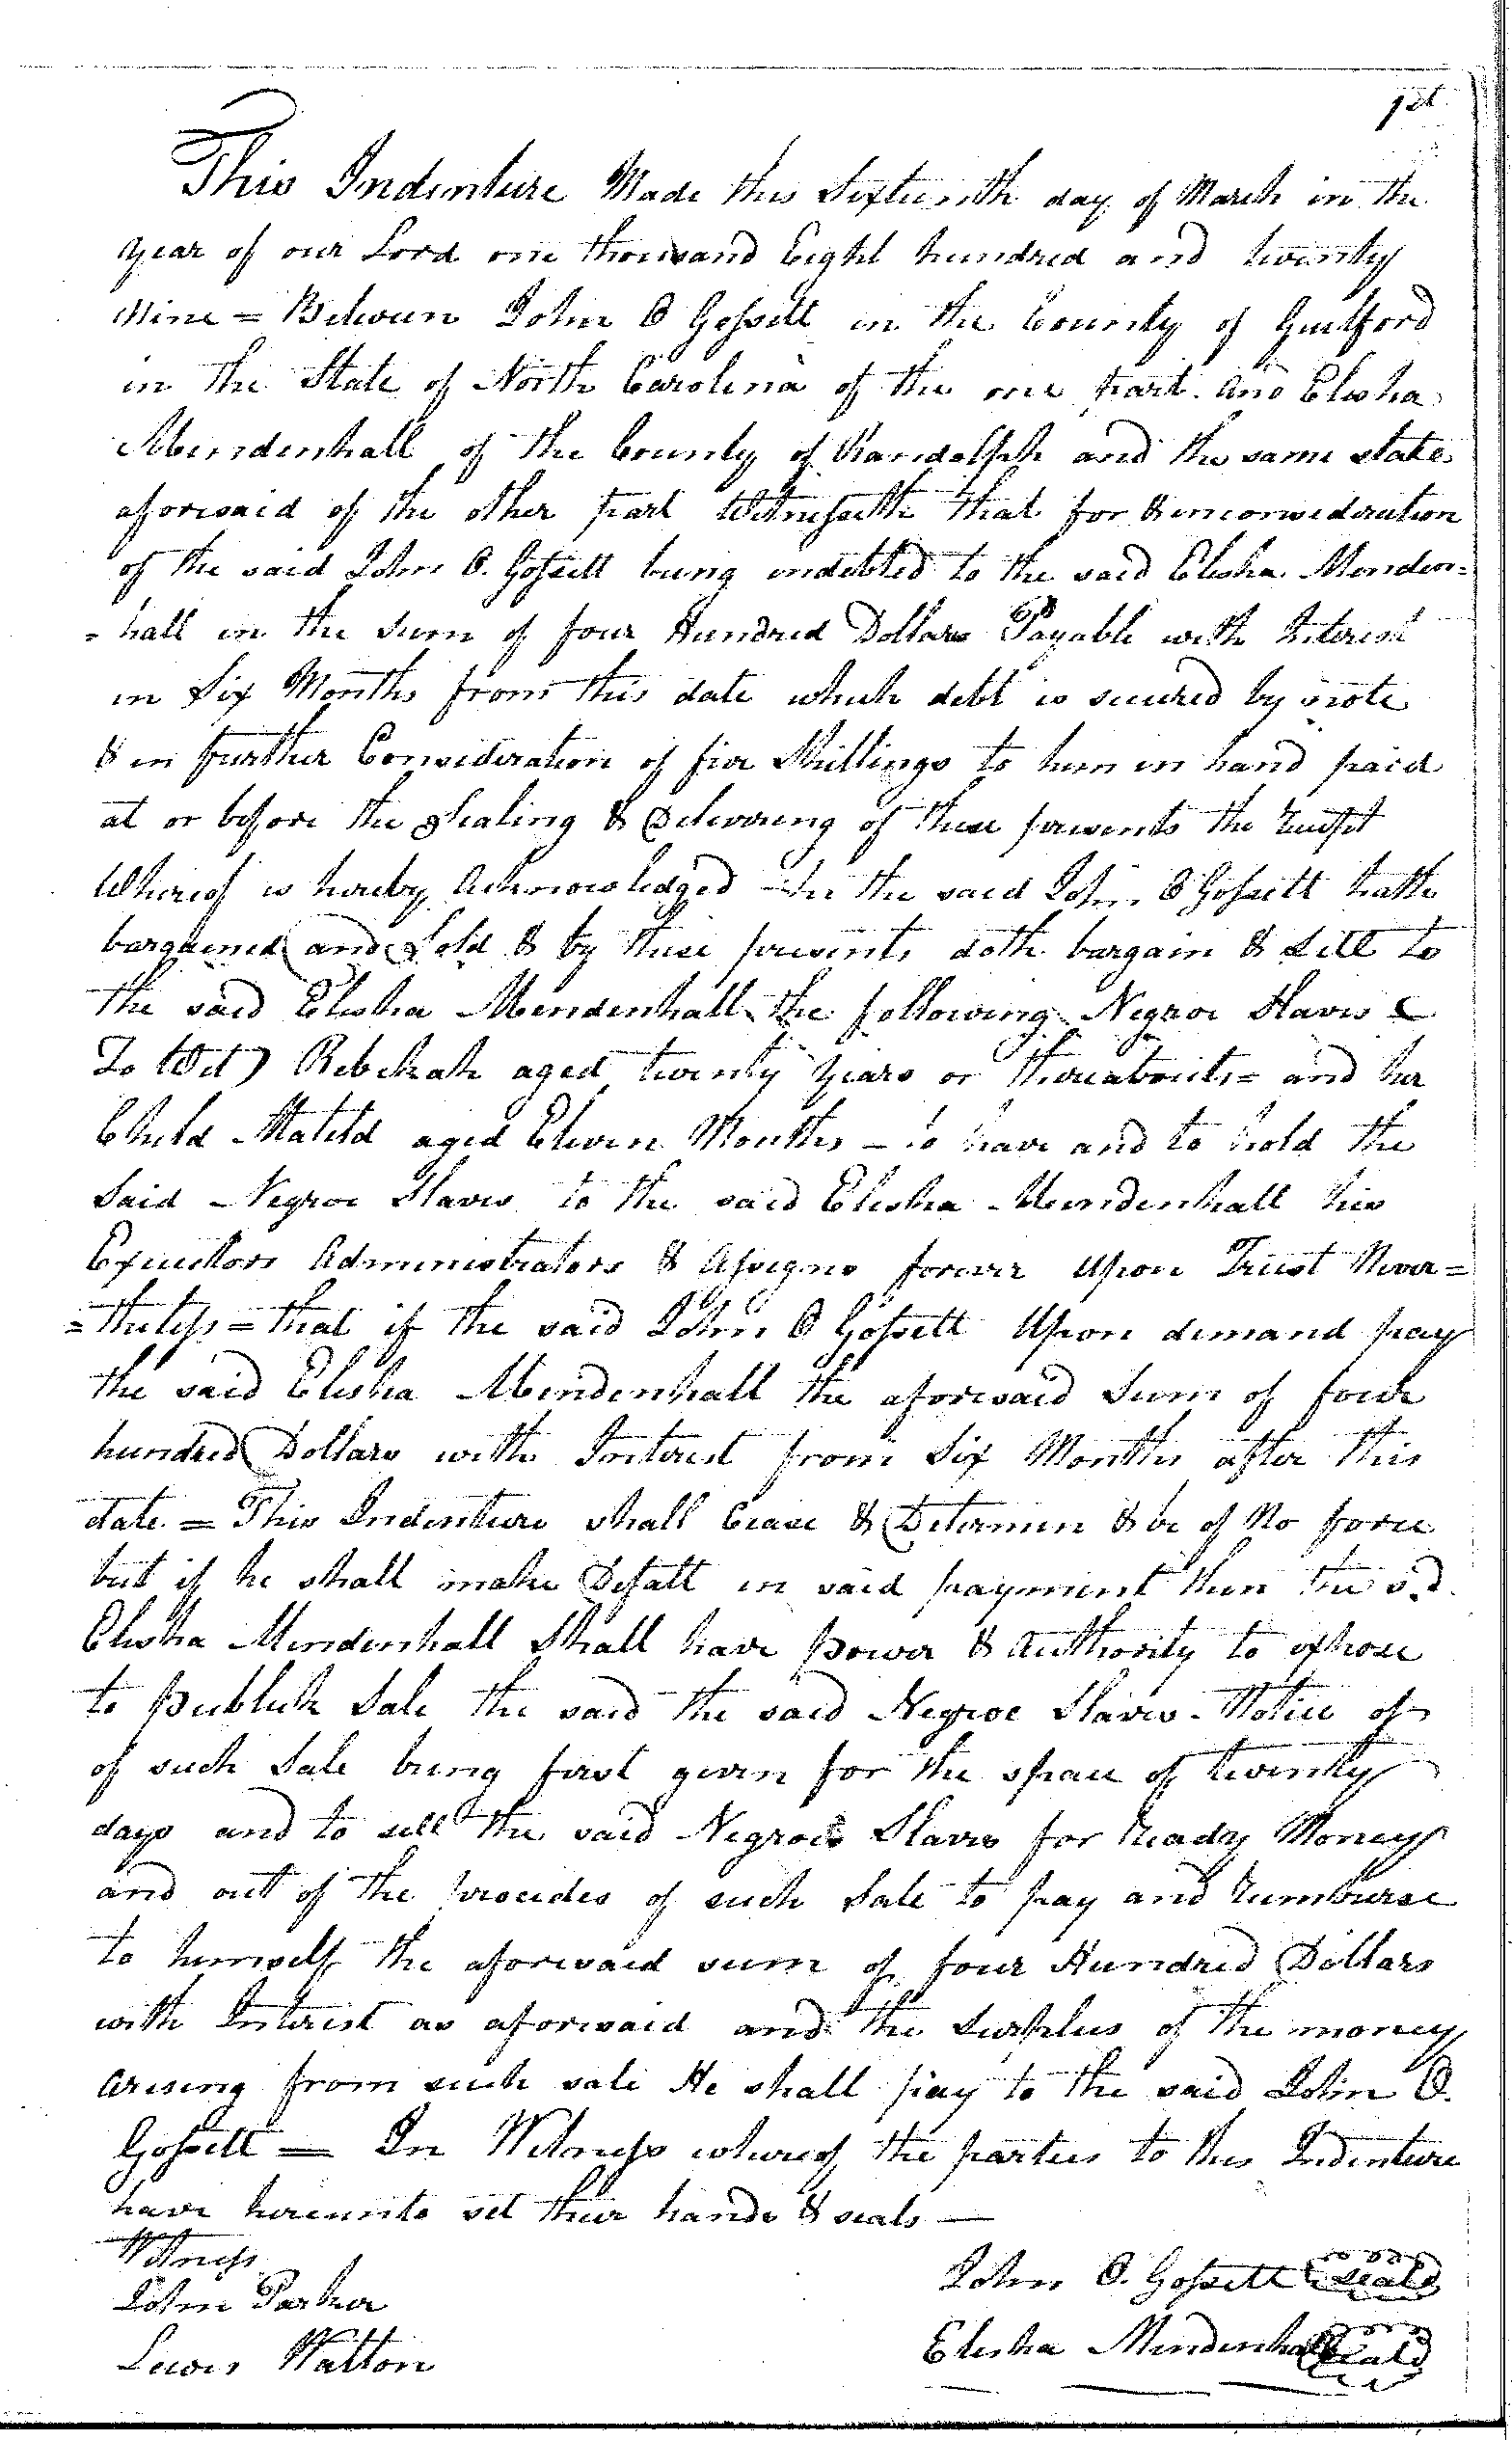 1st
This Indenture Made this Sixteenth day of March in the
year of our Lord one thousand Eight hundred and twenty
Nine = Between John O Gossett in the County of Guilford
in the State of North Carolina of the one part. and Elisha
Mendenhall of the County of Randolph and the same state
aforesaid of the other part Witnesseth that for & in consideration
of the said John O. Gossett being indebted to the said Elisha Menden=
=hall in the sum of four Hundred Dollars Payable with Interest
in Six Months from this date which debt is secured by note
& in further Consideration of five Shillings to him in hand paid
at or before the Sealing & Delivering of these presents the receipt
Whereof is hereby Acknowledged the said John O Gossett hath
bargained and Sold & by these presents doth bargain & Sell to
the said Elisha Mendenhall the following Negroe Slaves (
To Wit) Rebekah aged twenty years or thereabouts = and her
Child Matild aged Eleven Months – to have and to hold the
Said Negroe Slaves to the said Elisha Mendenhall his
Executors Administrators & Assigns forever Upon Trust Never=
=theless = that if the said John O Gossett Upon demand pay
the said Elisha Mendenhall the aforesaid Sum of four
hundred Dollars with Interest from Six Months after this
date = This Indenture shall Cease & Determin & be of No force
but if he shall make Defalt in said payment then the sd.
Elisha Mendenhall Shall have power & Authority to expose
to publick Sale the said the said Negroe Slaves - Notice of
of such Sale being first given for the space of twenty
days and to sell the said Negroes Slaves for ready Money
and out of the procedes of such Sale to pay and reimburse
to himself the aforesaid sum of four Hundred Dollars
with Interest as aforesaid and the Surplus of the money
arising from such sale He shall pay to the said John O.
Gossett — In Witness whereof the parties to this Indenture
have hereunto set their hands & seals —
Witness
John Parker
Lewis Walton
John O. Gossett seald
Elisha Mendenhall seald